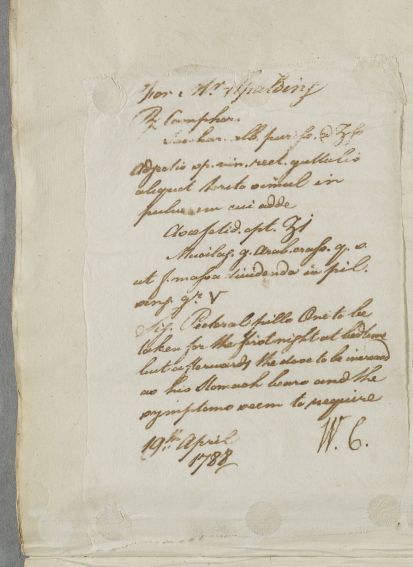 For Mr Spalding
℞ Camphor.
Sacchar. alb. puriss. a ʒſs
Adjectis sp. vin. rect. guttulis
aliquot terito simul in
pulverem cui adde
Assafœtid. opt. ʒi
Mucilag. g. arab. crass. q. s.
ut f. massa dividenda in pil.
sing. gr. V
Sig. Pectoral pills One to be
taken for the first night at bedtime
but afterwards the dose to be increased
as his Stomach bears and the
symptoms seem to require
19th April W. C.
1788